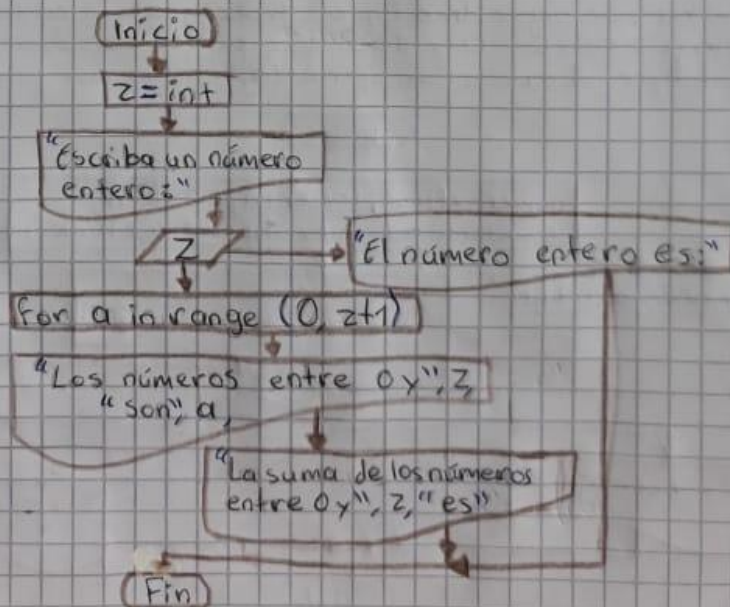 Inicio
z = int
"Escriba un número
entero:"
z
"El número entero es:"
for a in range (0, z+1)
"Los números entre 0 y", z,
"son", a,
"La suma de los números
entre 0 y", z, "es"
Fin